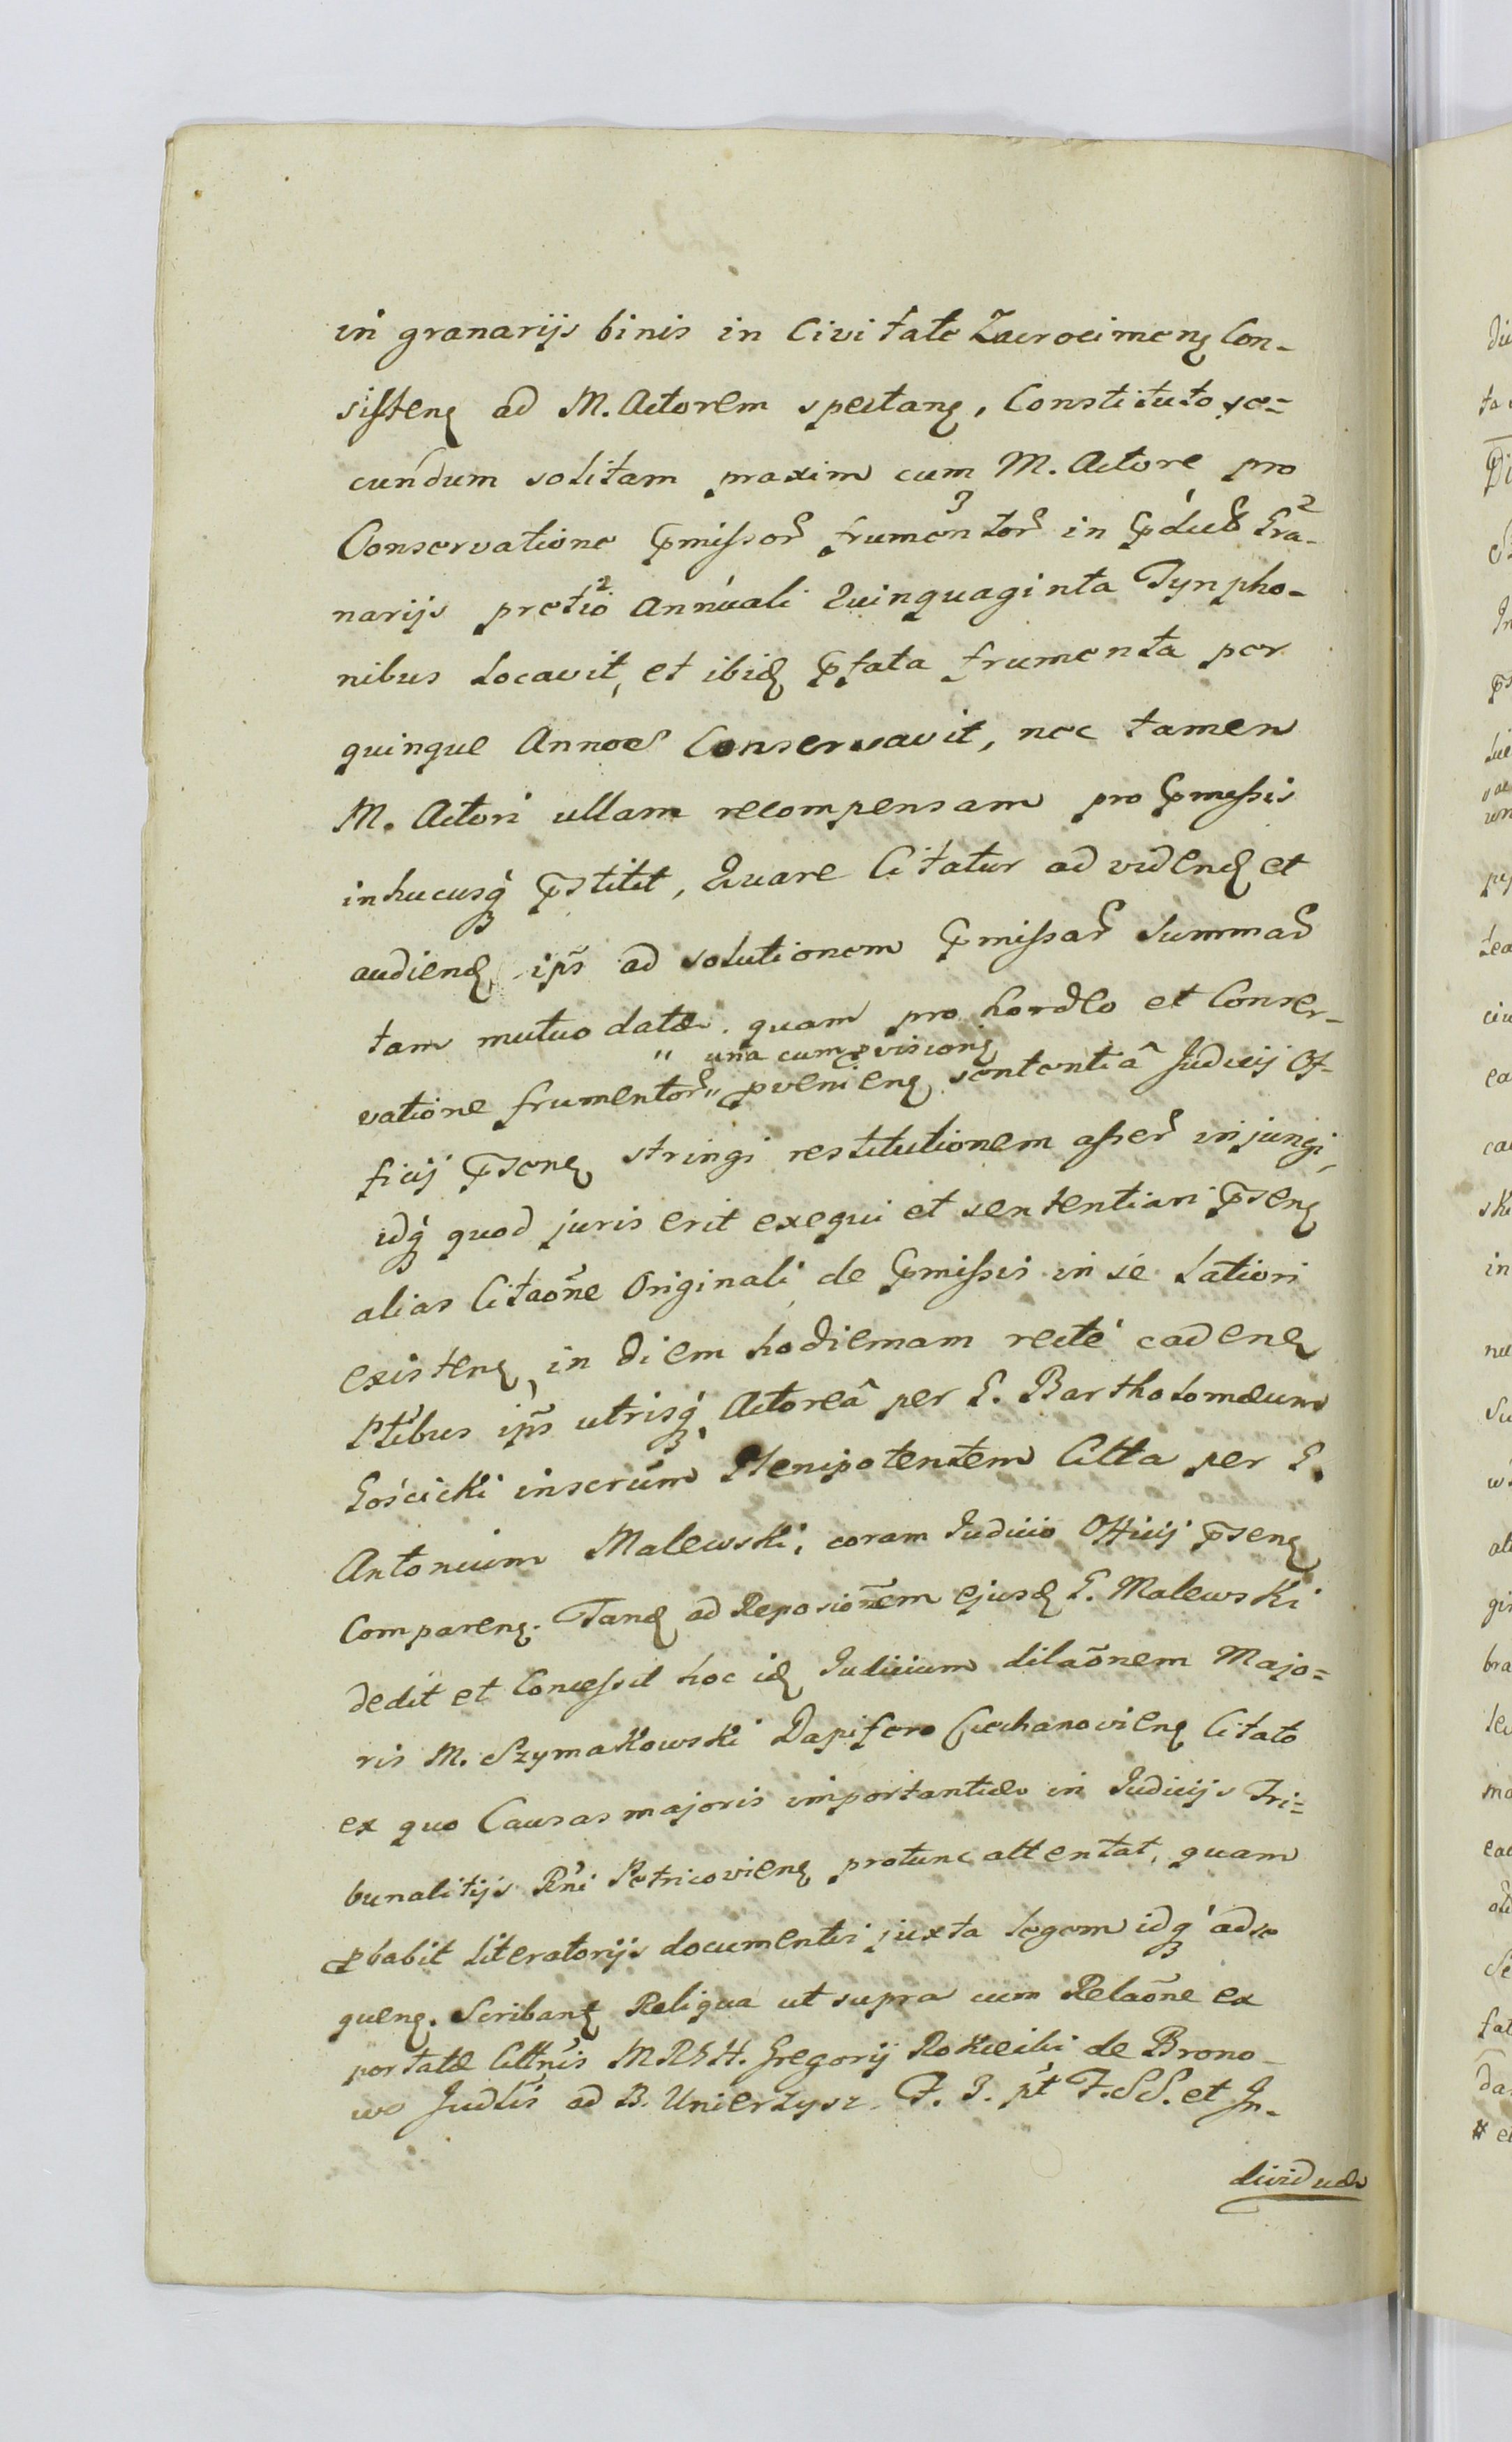 in granarijs binis in Civitate Zacrocimenȝ Con-
sistenȝ ad M. Actorem spectanȝ, Constituto se=
cundum solitam praxim cum M. Actore pro
Conservatione p̄missor̃ frumentor̃ in p̄dictis Gra-
narijs pretio Annuali Quinquaginta Tynpho-
nibus Locavit, et ibiȝ p̄fata frumenta per
quinque Annos Conservavit, nec tamen
M. Actori ullam recompensam pro p̄missis
inhucusq́ȝ p̄stitit, Quare Citatur ad videnȝ et
audienȝ ip̃s ad solutionem p̄missar̃ Summar̃
tam mutuo datæ quam pro hordeo et Conser-
" una cum pvisionȝ
vatione frumentor̃ " pvenienȝ sententiâ Judicij Of-
ficij p̄senȝ stringi restitutionem asser̃ injungi,
idq́ȝ quod juris erit exequi et sententiari p̄senȝ
alias Citaõne Originali de p̄missis in se latiori
existenȝ, in diem hodiernam recté cadenȝ
Ptibus ip̃s utrisq́ȝ Actoreâ per G. Bartholomæum
Gościcki inscrúm Plenipotentem Citta per G.
Antonium Malewski, coram Judicio Officij p̄senȝ
Comparenȝ. Tanȝ ad Reposiõnem ejusȝ G. Malewski
dedit et Concessit hoc iȝ Judicium dilaõnem Majo=
ris M. Szymakowski Dapifero Ciechanovienȝ Citato
ex quo Causas majoris importantiæ in Judicijs Tri=
bunalitijs Rńi Petricovienȝ protunc attentat, quam
pbabit literatorijs documentis juxta legem idq́ȝ adse
quenȝ. Scribanȝ Reliqua ut supra cum Relaõne ex
portatæ Cittñis MRSH. Gregorij Rokicki de Brono-
wo Judlis ad B. Unierzysz. F. 3. pt́ F. SS. et In-
dividuæ